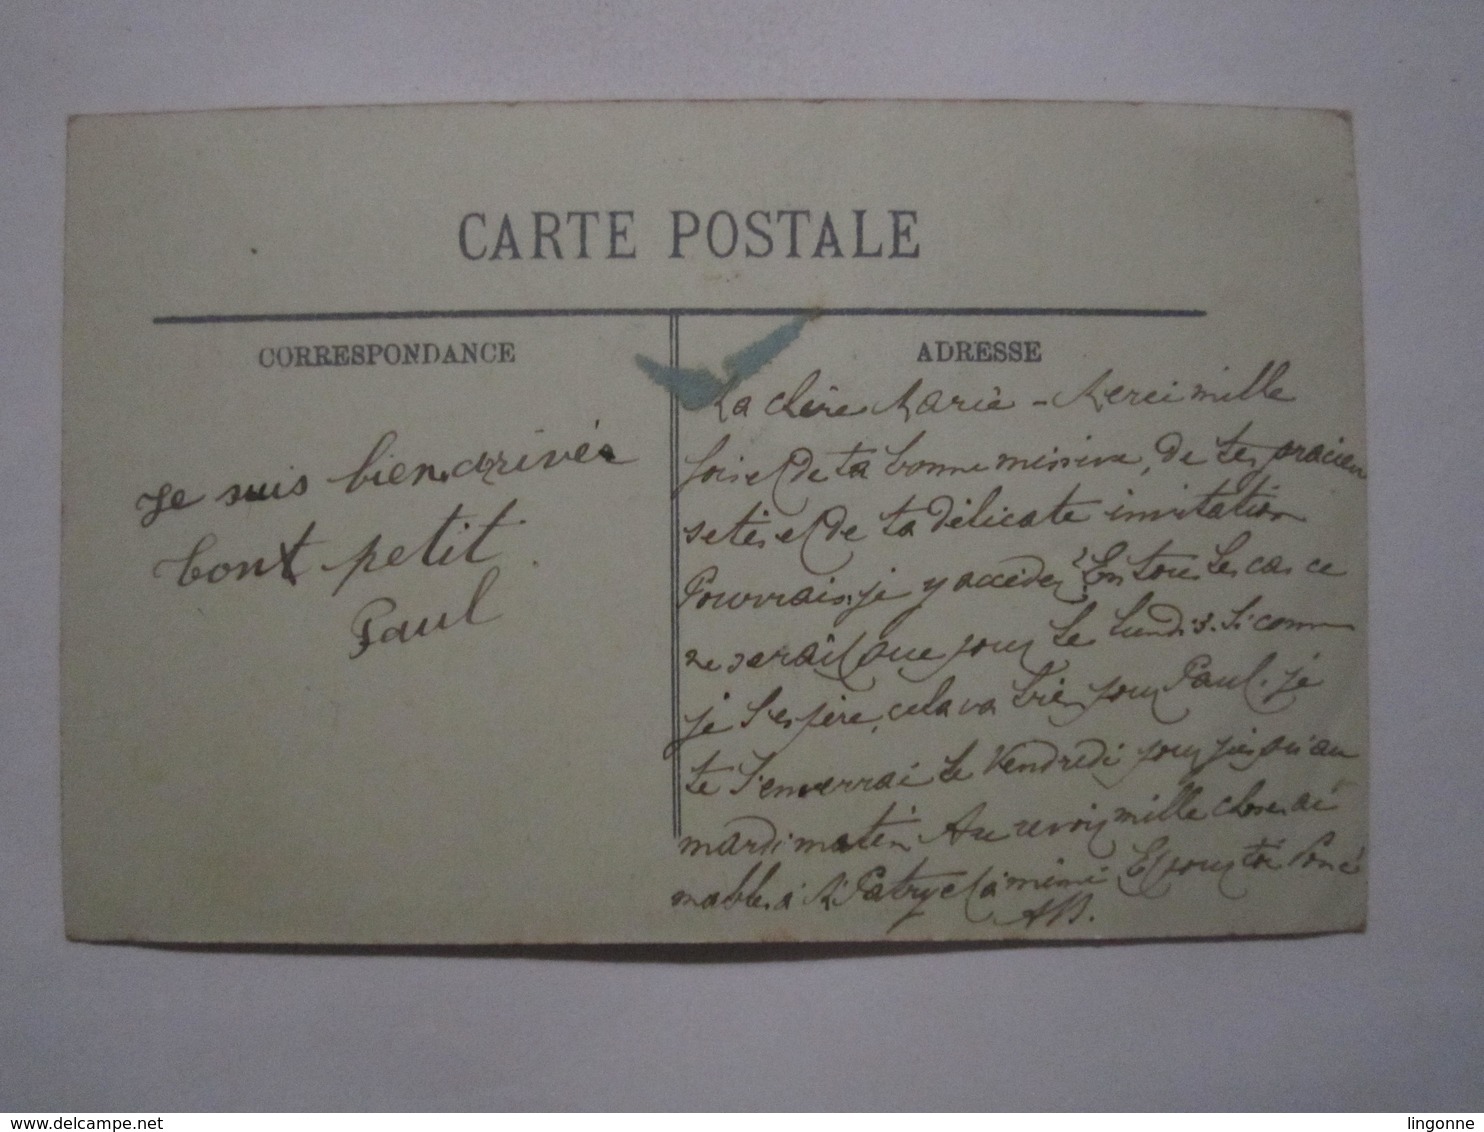 CARTE POSTALE
CORRESPONDANCE
Je suis bien arrivér
bont petit
Paul
ADRESSE
Ma chère Marie - Merci mille
fois et de ta bonne missive, de tes gracieu
setés et de ta délicate invitation
Pourrais-je y accéder? En tous les cas ce
ne serait que pour le lundi 3. Si comme
je l'espère, cela va bien pour Paul. je
te l'enverrai le Vendredi pour jusqu'au
mardi matin. Au revoir mille choses ai
mables à M Patry et à mimi Et pour toi
AB.
www.delcampe.net
lingonne